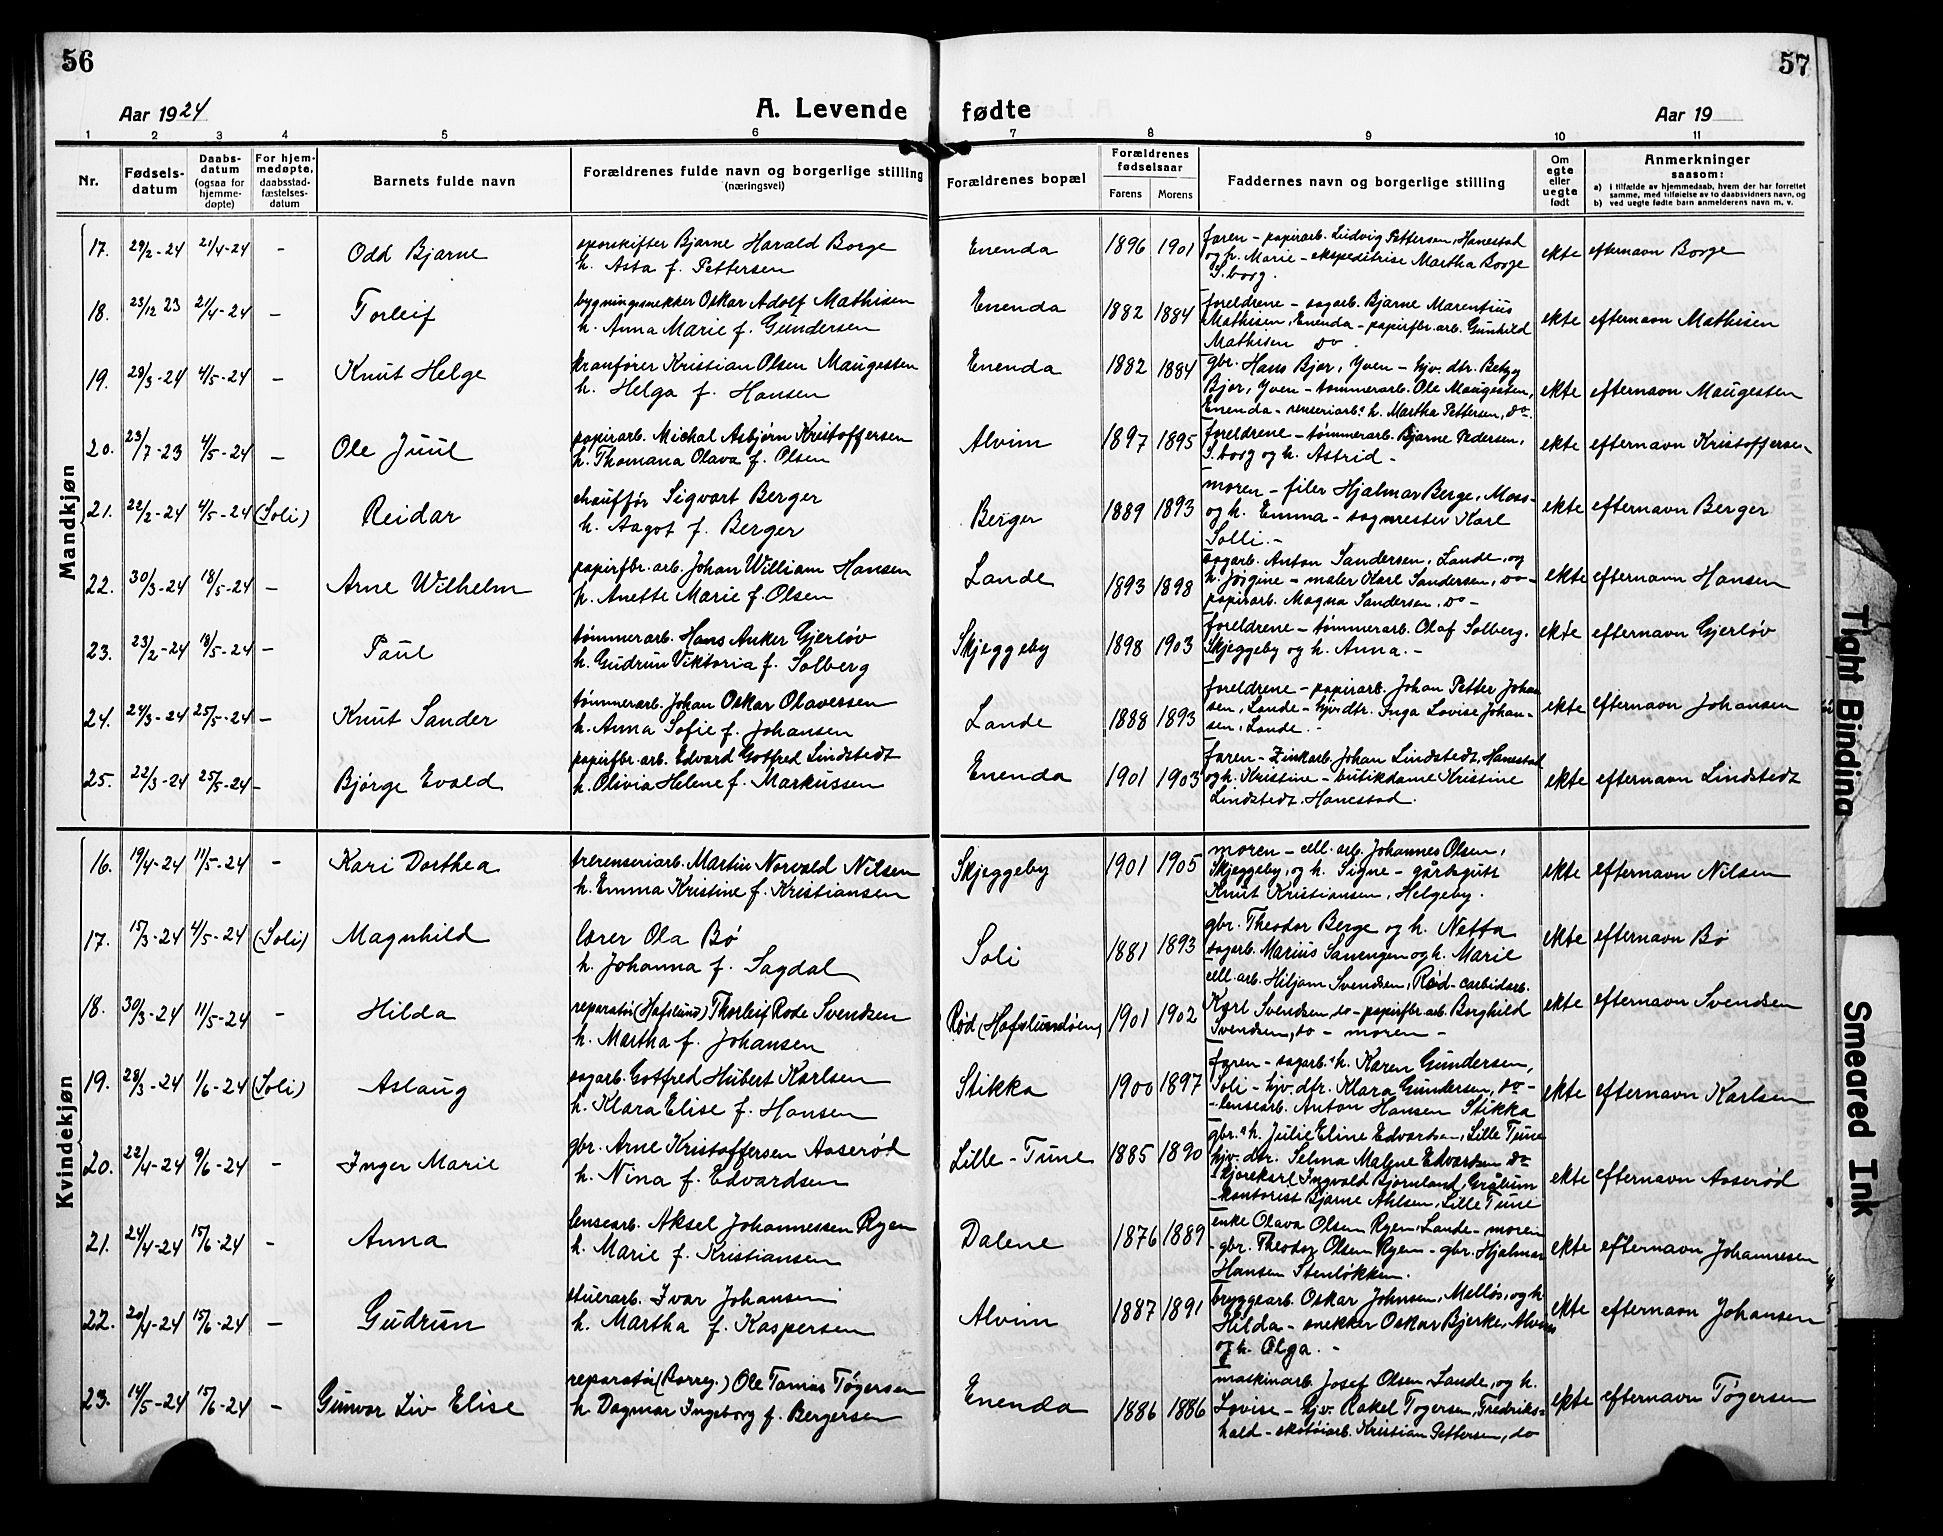 56
57
Aar 1924
A. Levende fødte
Aar 19
1 2 3 4 5 6 7 8 9 10 11
Nr.
Fødsels-
datum
Daabs-
datum
(ogsaa for
hjemme-
døpte)
For hjem-
medøpte,
daabsstad-
fæstelses-
datum
Barnets fulde navn
Forældrenes fulde navn og borgerlige stilling
(næringsvei)
Forældrenes bopæl
Forældrenes
fødselsaar
Farens Morens
Faddernes navn og borgerlige stilling
Om
egte
eller
uegte
født
Anmerkninger
saasom:
a) i tilfælde av hjemmedaab, hvem der har forrettet
samme, med tilføielse av to daabsvidners navn, og
b) ved uegte fødte barn anmelderens navn m. v.
Mandkjøn
17. 29/2-24 21/4-24 - Odd Bjarne
sporskifter Bjarne Harald Borge
h. Asta f. Pettersen
Enenda 1896 1901
faren - papirarb. Ludvig Pettersen, Hanestad
og h. Marie - ekspeditrise Martha Borge
S.borg.
ekte efternavn Borge
18. 23/12 23 21/4-24 - Torleif
bygningssnekker Oskar Adolf Mathisen
h. Anna Marie f. Gundersen
Enenda 1882 1884
foreldrene - sagarb. Bjarne Marentius
Mathisen, Enenda - papirfbr.arb. Gunhild
Mathisen do.
ekte efternavn Mathisen
19. 29/3-24 4/5-24 - Knut Helge
kranfører Kristian Olsen Maugesten
h. Helga f. Hansen
Enenda 1882 1884
gbr. Hans Bjor, Yven - hjv. dtr. Betzy
Bjor, Yven - tømmerarb. Ole Maugesten,
Enenda - renseriarb.s h. Martha Pettersen, do.
ekte efternavn Maugesten
20. 23/7-23 4/5-24 - Ole Juul
papirarb. Michal Asbjørn Kristoffersen
h. Thomana Olava f. Olsen
Alvim 1897 1895
foreldrene - tømmerarb. Bjarne Pedersen,
S.borg og h. Astrid -
ekte efternavn Kristoffersen
21. 22/2-24 4/5-24 (Soli) Reidar
chauffør Sigvart Berger
h. Aagot f. Berger
Berger 1889 1893
moren - filer Hjalmar Berge, Moss -
og h. Emma - sagmester Karl
Solli. -
ekte efternavn Berger
22. 30/3-24 18/5-24 - Arne Wilhelm
papirfbr.arb. Johan William Hansen
h. Anette Marie f. Olsen
Lande 1893 1898
sagarb. Anton Sandersen, Lande, og
h. Jørgine - maler Karl Sandersen, do -
papirarb. Magna Sandersen, do -
ekte efternavn Hansen
23. 23/2-24 18/5-24 - Paul
tømmerarb. Hans Anker Gjerløv
h. Gudrun Viktoria f. Solberg
Skjeggeby 1898 1903
foreldrene - tømmerarb. Olaf Solberg,
Skjeggeby og h. Anna. -
ekte efternavn Gjerløv
24. 24/3-24 25/5-24 - Knut Sander
tømmerarb. Johan Oskar Olavessen
h. Anna Sofie f. Johansen
Lande 1888 1893
foreldrene - papirarb. Johan Petter Johan
sen, Lande - hjv. dtr. Inga Lovise Johan-
sen, Lande. -
ekte efternavn Johansen
25. 22/3-24 25/5-24 - Bjørge Evald
papirfbr.arb. Edvard Gotfred Lindstedt
h. Olivia Helene f. Markussen
Enenda 1901 1903
faren - Zinkarb. Johan Lindstedt, Hanestad
og h. Kristine - butikdame Kristine
Lindstedt, Hanestad.
ekte efternavn Lindstedt
Kvindekjøn
16. 19/4-24 11/5-24 - Kari Dorthea
trerenseriarb. Martin Norvald Nilsen
h. Emma Kristine f. Kristiansen
Skjeggeby 1901 1905
moren - cell. arb. Johannes Olsen,
Skjeggeby, og h. Signe - gårdsgutt
Knut Kristiansen, Helgeby.
ekte efternavn Nilsen
17. 15/3-24 4/5-24 (Soli) Magnhild
lærer Ola Bø
h. Johanna f. Sagdal
Soli 1881 1893
gbr. Theodor Berge og h. Netta
sagarb. Marius Sanengen og h. Marie
ekte efternavn Bø
18. 30/3-24 11/5-24 - Hilda
reparatør (Hafslund) Thorleif Rode Svendsen
h. Martha f. Johansen
Rød (Hafslundøen) 1901 1902
cell. arb. Hiljam Svendsen, Rød - carbidarb.
Karl Svendsen, do - papirfbr.arb Borghild
Svendsen, do - moren -
ekte efternavn Svendsen
19. 28/3-24 1/6-24 (Soli) Aslaug
sagarb. Gotfred Hubert Karlsen
h. Klara Elise f. Hansen
Stikka 1900 1897
faren - sagarb.s h. Karen Gundersen,
Soli - hjv. dtr. Klara Gundersen, do -
- lensearb. Anton Hansen Stikka
ekte efternavn Karlsen
20. 22/4-24 9/6-24 - Inger Marie
gbr. Arne Kristoffersen Aaserød
h. Nina f. Edvardsen
Lille-Tune 1885 1890
gbr.s h. Julie Eline Edvardsen, Lille Tune
hjv. dtr. Selma Malene Edvardsen do
- kjørekarl Ingvald Bjørnland, Grålum
- kontorist Bjarne Ahlsen, Lille Tune
ekte efternavn Aaserød
21. 24/4-24 15/6-24 - Anna
lensearb. Aksel Johannessen Ryen
h. Marie f. Kristiansen
Dalene 1876 1889
enke Olava Olsen Ryen, Lande - moren
- gbr. Theodor Olsen Ryen - gbr. Hjalmar
Hansen Stenløkken.
ekte efternavn Johannesen
22. 20/4-24 15/6-24 - Gudrun
stuerarb. Ivar Johansen
h. Martha f. Kaspersen
Alvim 1887 1891
bryggearb. Oskar Johnsen, Melløs, og h.
Hilda - snekker Oskar Bjerke, Alvim
og h. Olga. -
ekte efternavn Johansen
23. 14/5-24 15/6-24 - Gunvor Liv Elise
reparatør (Borreg.) Ole Tomas Tøgersen
h Dagmar Ingeborg f. Bergersen
Enenda 1886 1886
maskinarb. Josef Olsen Lande, og h.
Lovise - hjv. Rakel Tøgersen, Fredriks-
hald - skotøiarb. Kristian Pettersen, do
ekte efternavn Tøgersen
Tight Binding
Smeared Ink